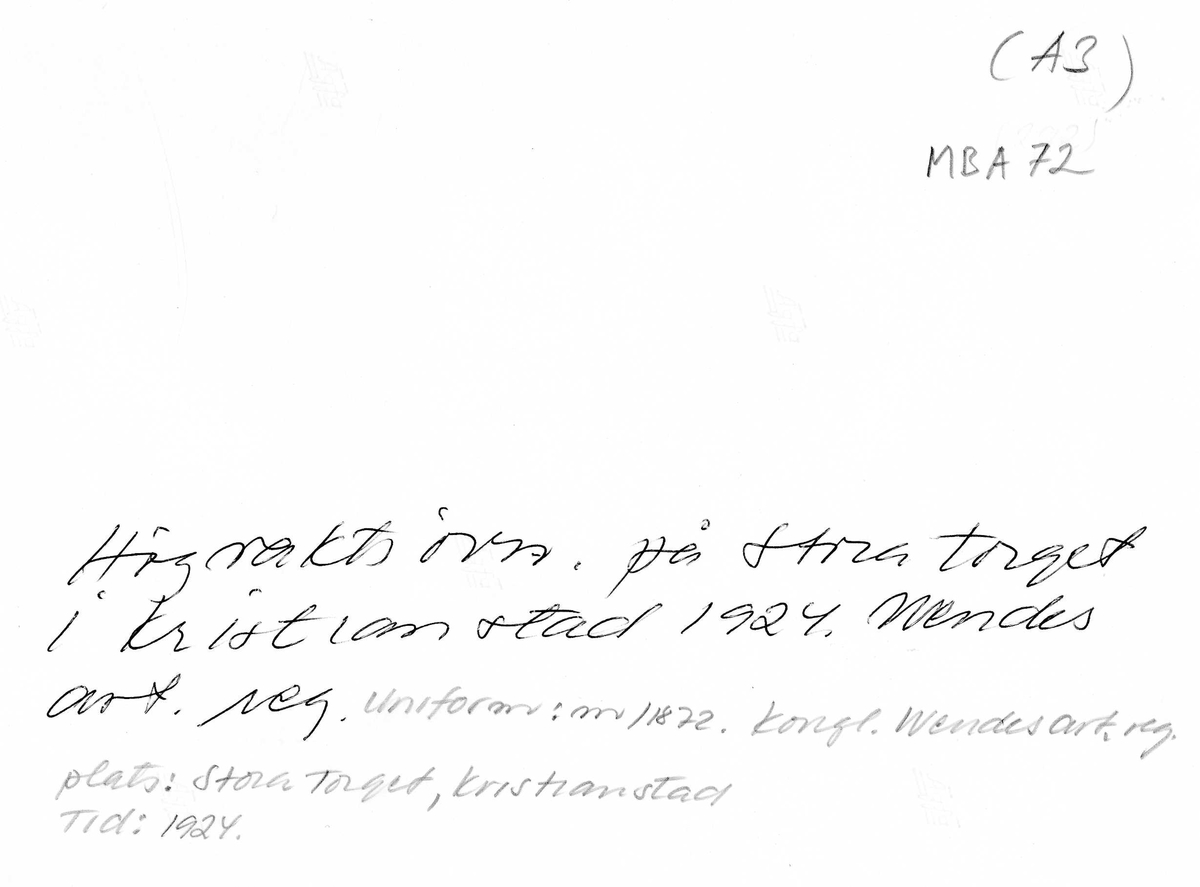 (A3)
MBA 72
Högvaktsövn. på Stora torget
i Kristianstad 1924. Wendes
art. reg. Uniform: m/1872. Kongl. Wendes art. reg.
plats: Stora Torget, Kristianstad
Tid: 1924.